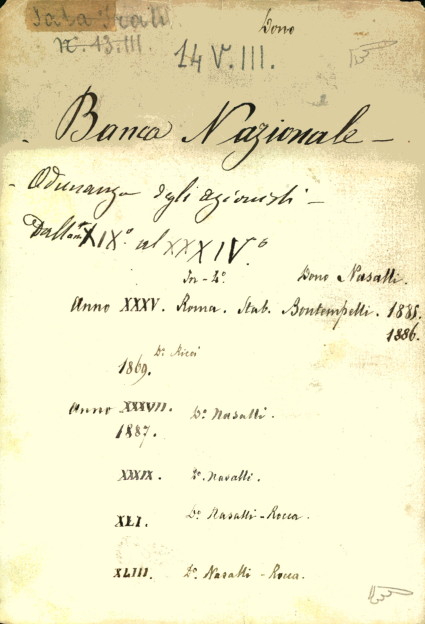 Dono
N. 13. III
14 V. III.
Banca Nazionale
Adunanza degli azionisti
Dall' XIXº al XXXIVº
In-4º. Dono Nasalli.
Anno XXXV. Roma. Stab. Bontempelli. 1885.
1886.
Dº Ricci
1869.
Anno XXXVII. Dº Nasalli.
1887.
XXXIX. Dº Nasalli.
XLI. Dº Nasalli-Rocca.
XLIII. Dº Nasalli-Rocca.